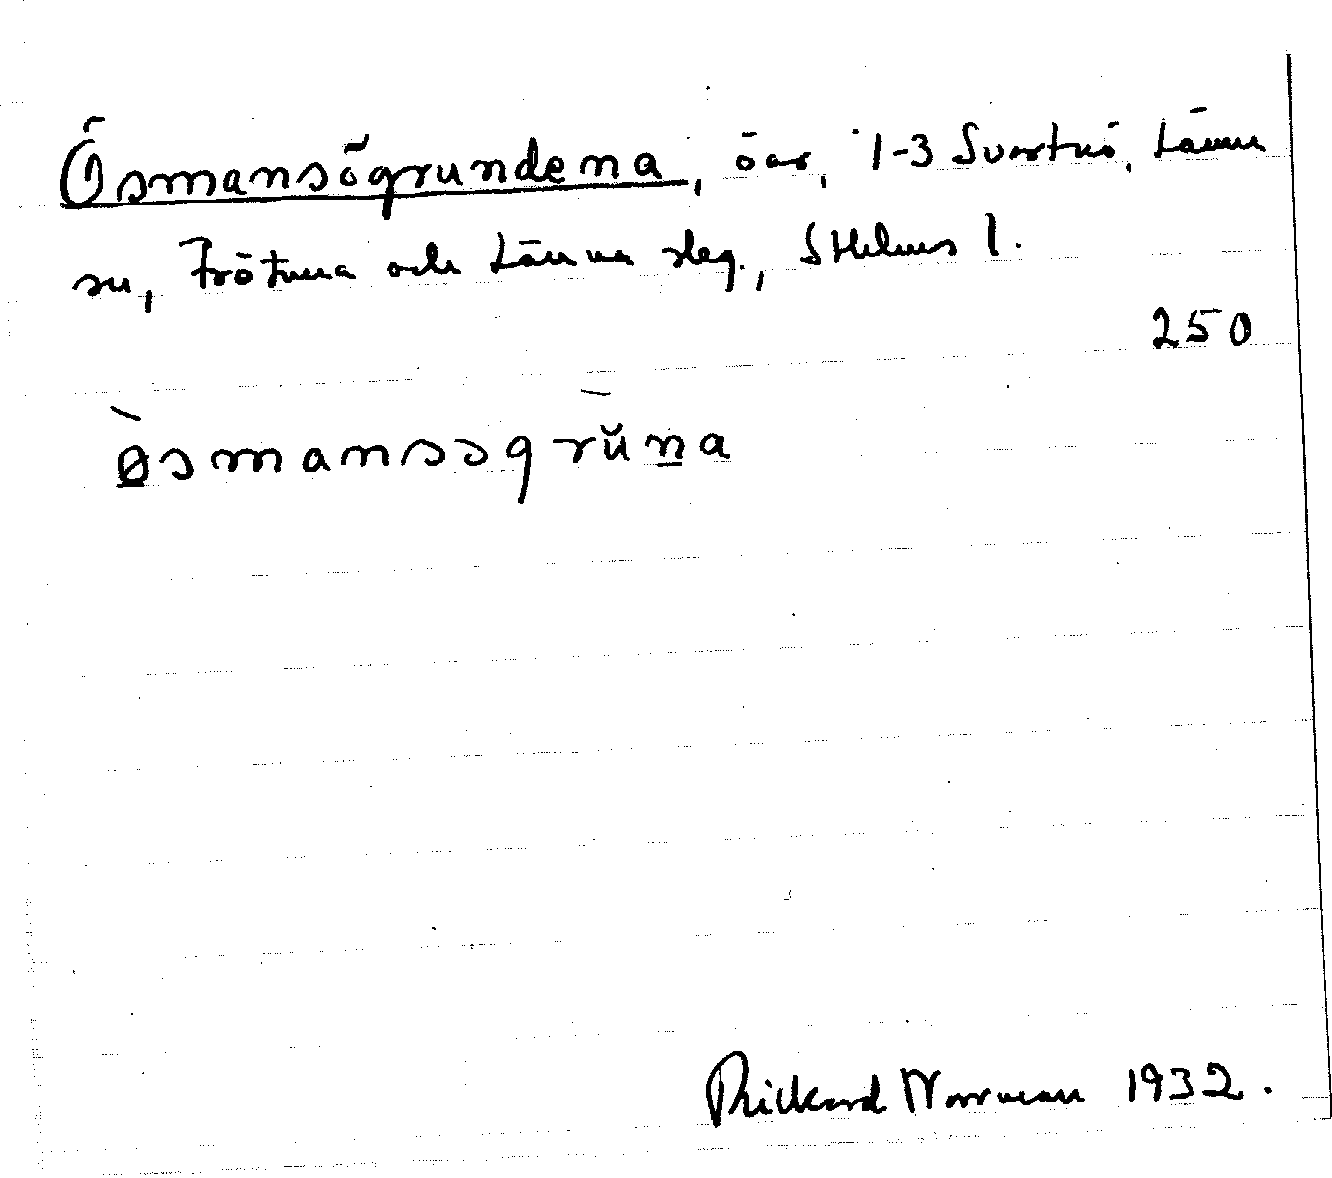 Ösmansögrundena, öar, 1-3 Svartnö, Länna
sn, Frötuna och Länna skg., Sthlms l.
250
ø̀smansɔgrŭna
Rickard Norrman 1932.